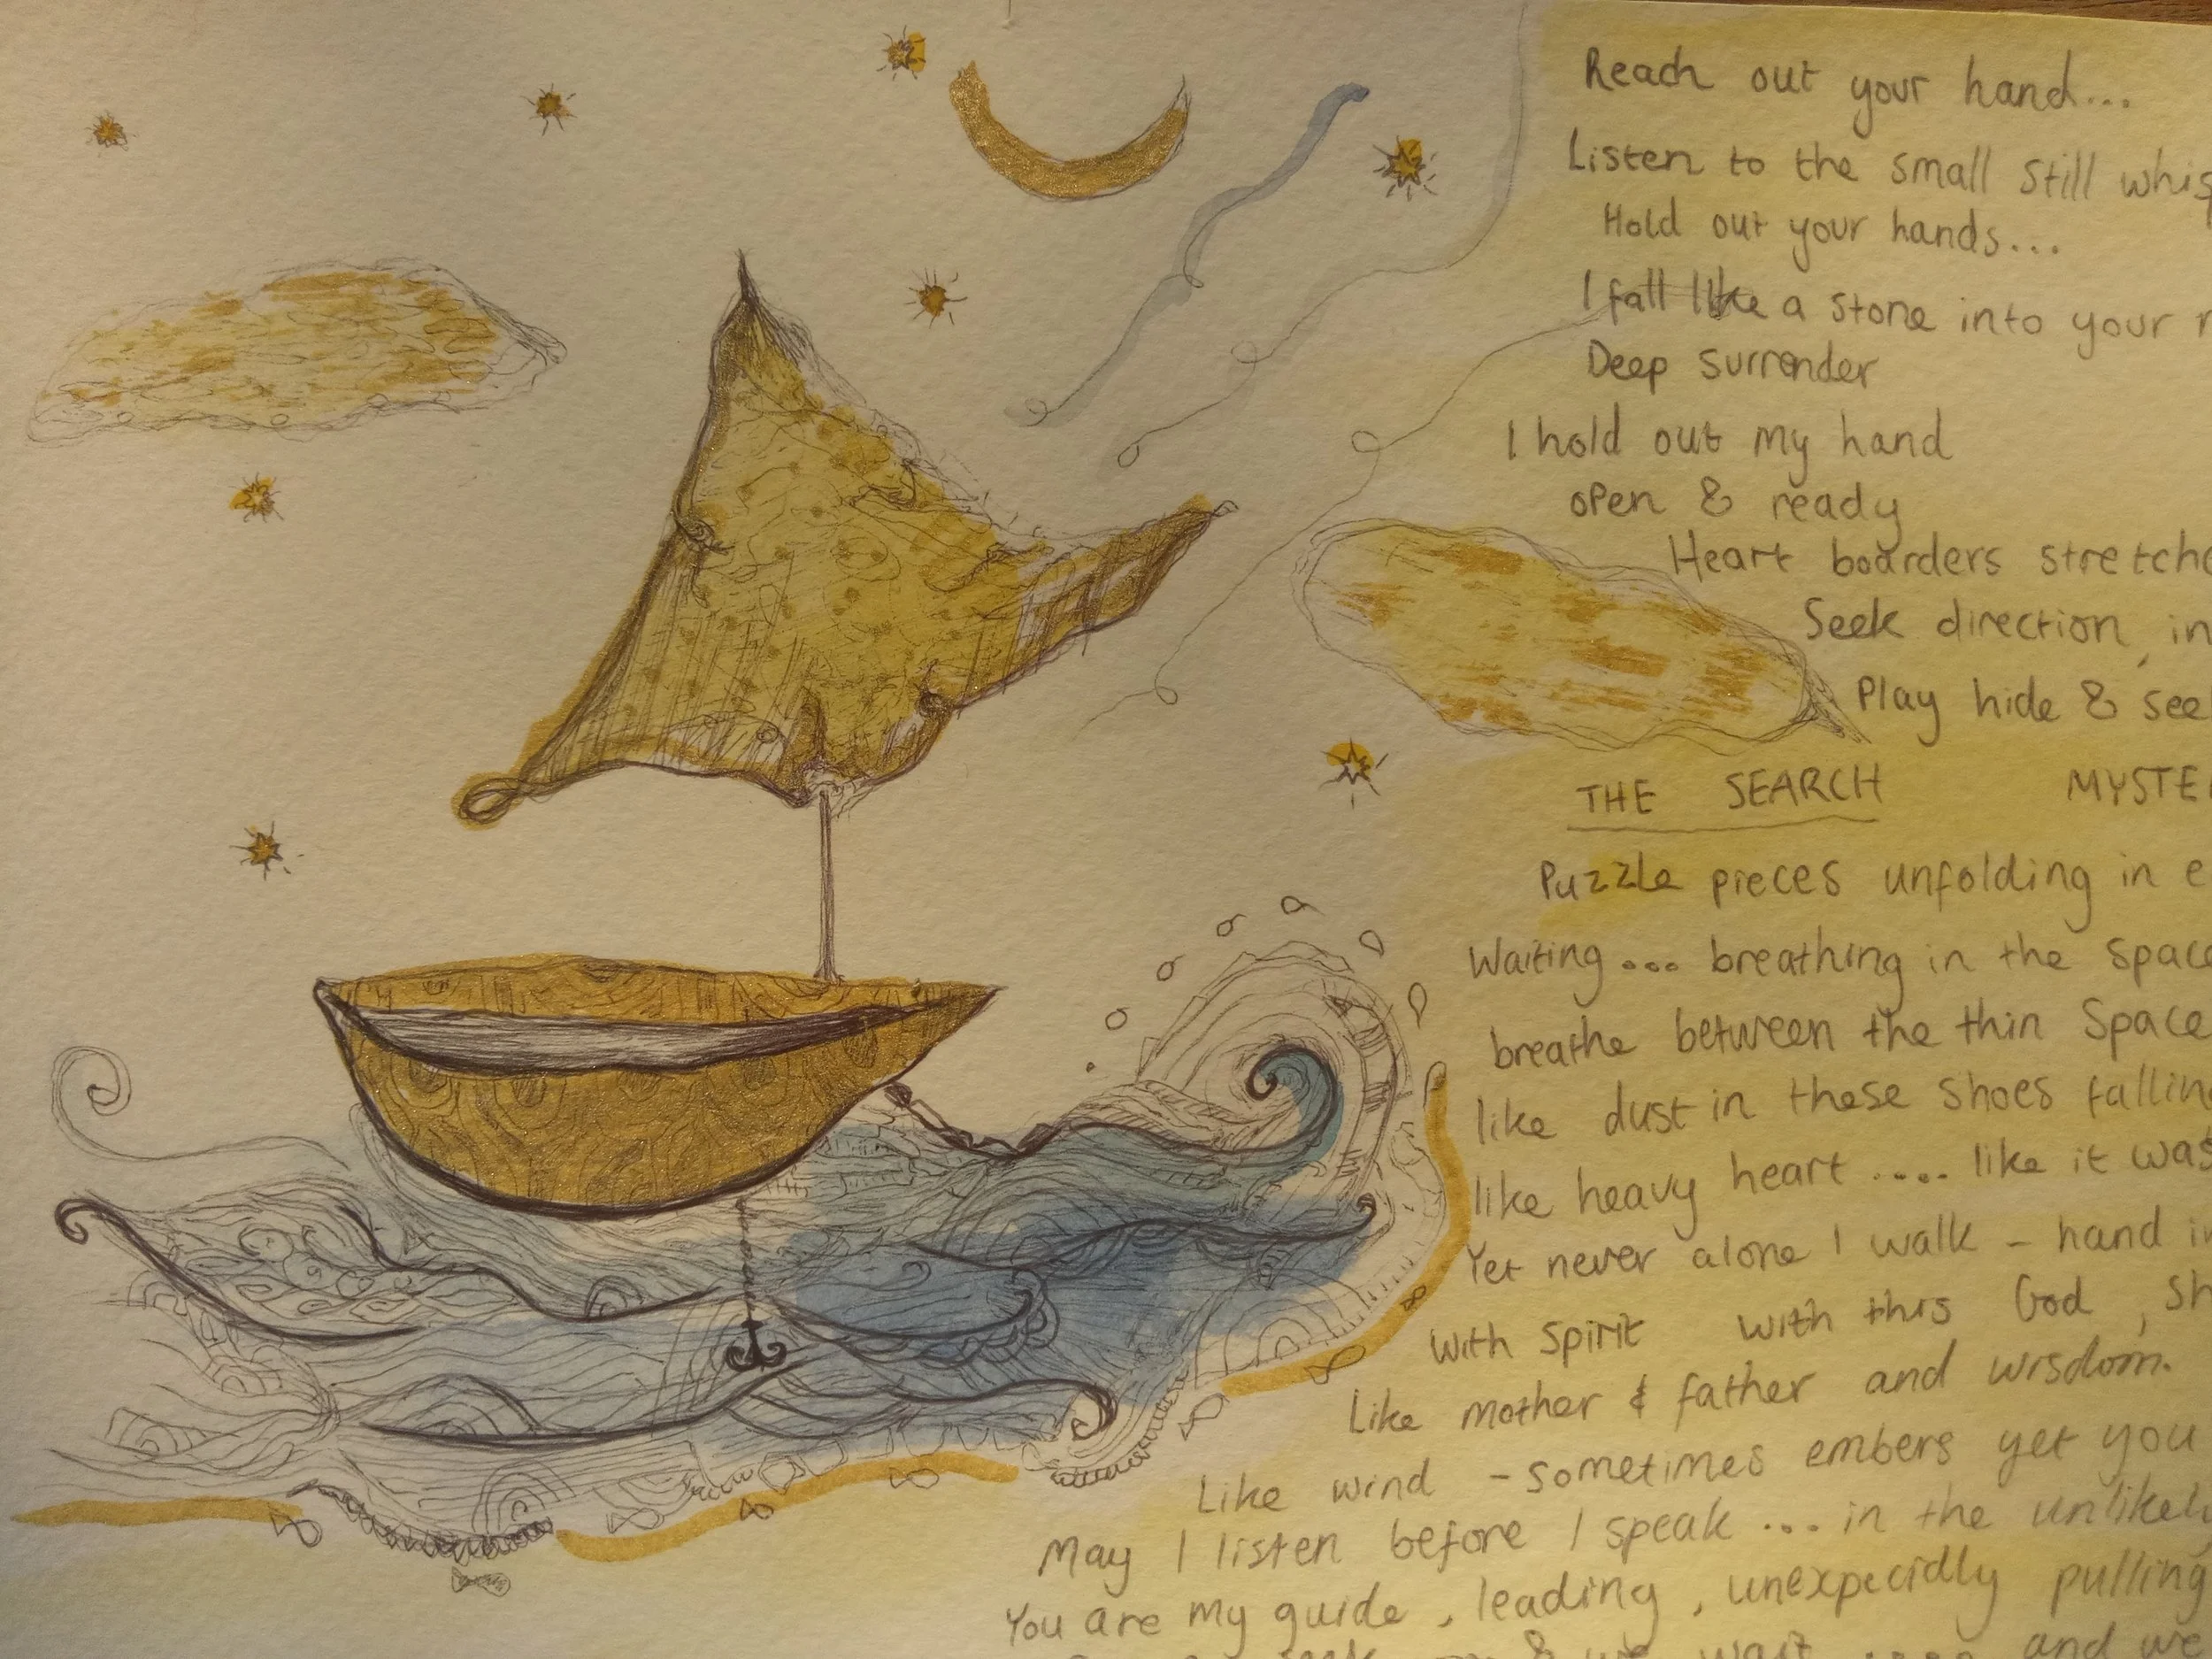 Reach out your hand...
Listen to the small still
Hold out your hands...
I fall like a stone into your
Deep surrender
I hold out my hand
open & ready
Heart boarders
Seek direction, in
Play hide & see
THE SEARCH
Puzzle pieces unfolding in
Waiting... breathing in the
breathe between the thin Space
like dust in these shoes
like heavy heart .... like it was
Yet never alone I walk - hand
With Spirit with this God,
Like mother & father and wisdom.
Like wind - sometimes embers yet you
May I listen before I speak ... in the
You are my guide, leading, unexpecidly pulling
& we wait .... and we